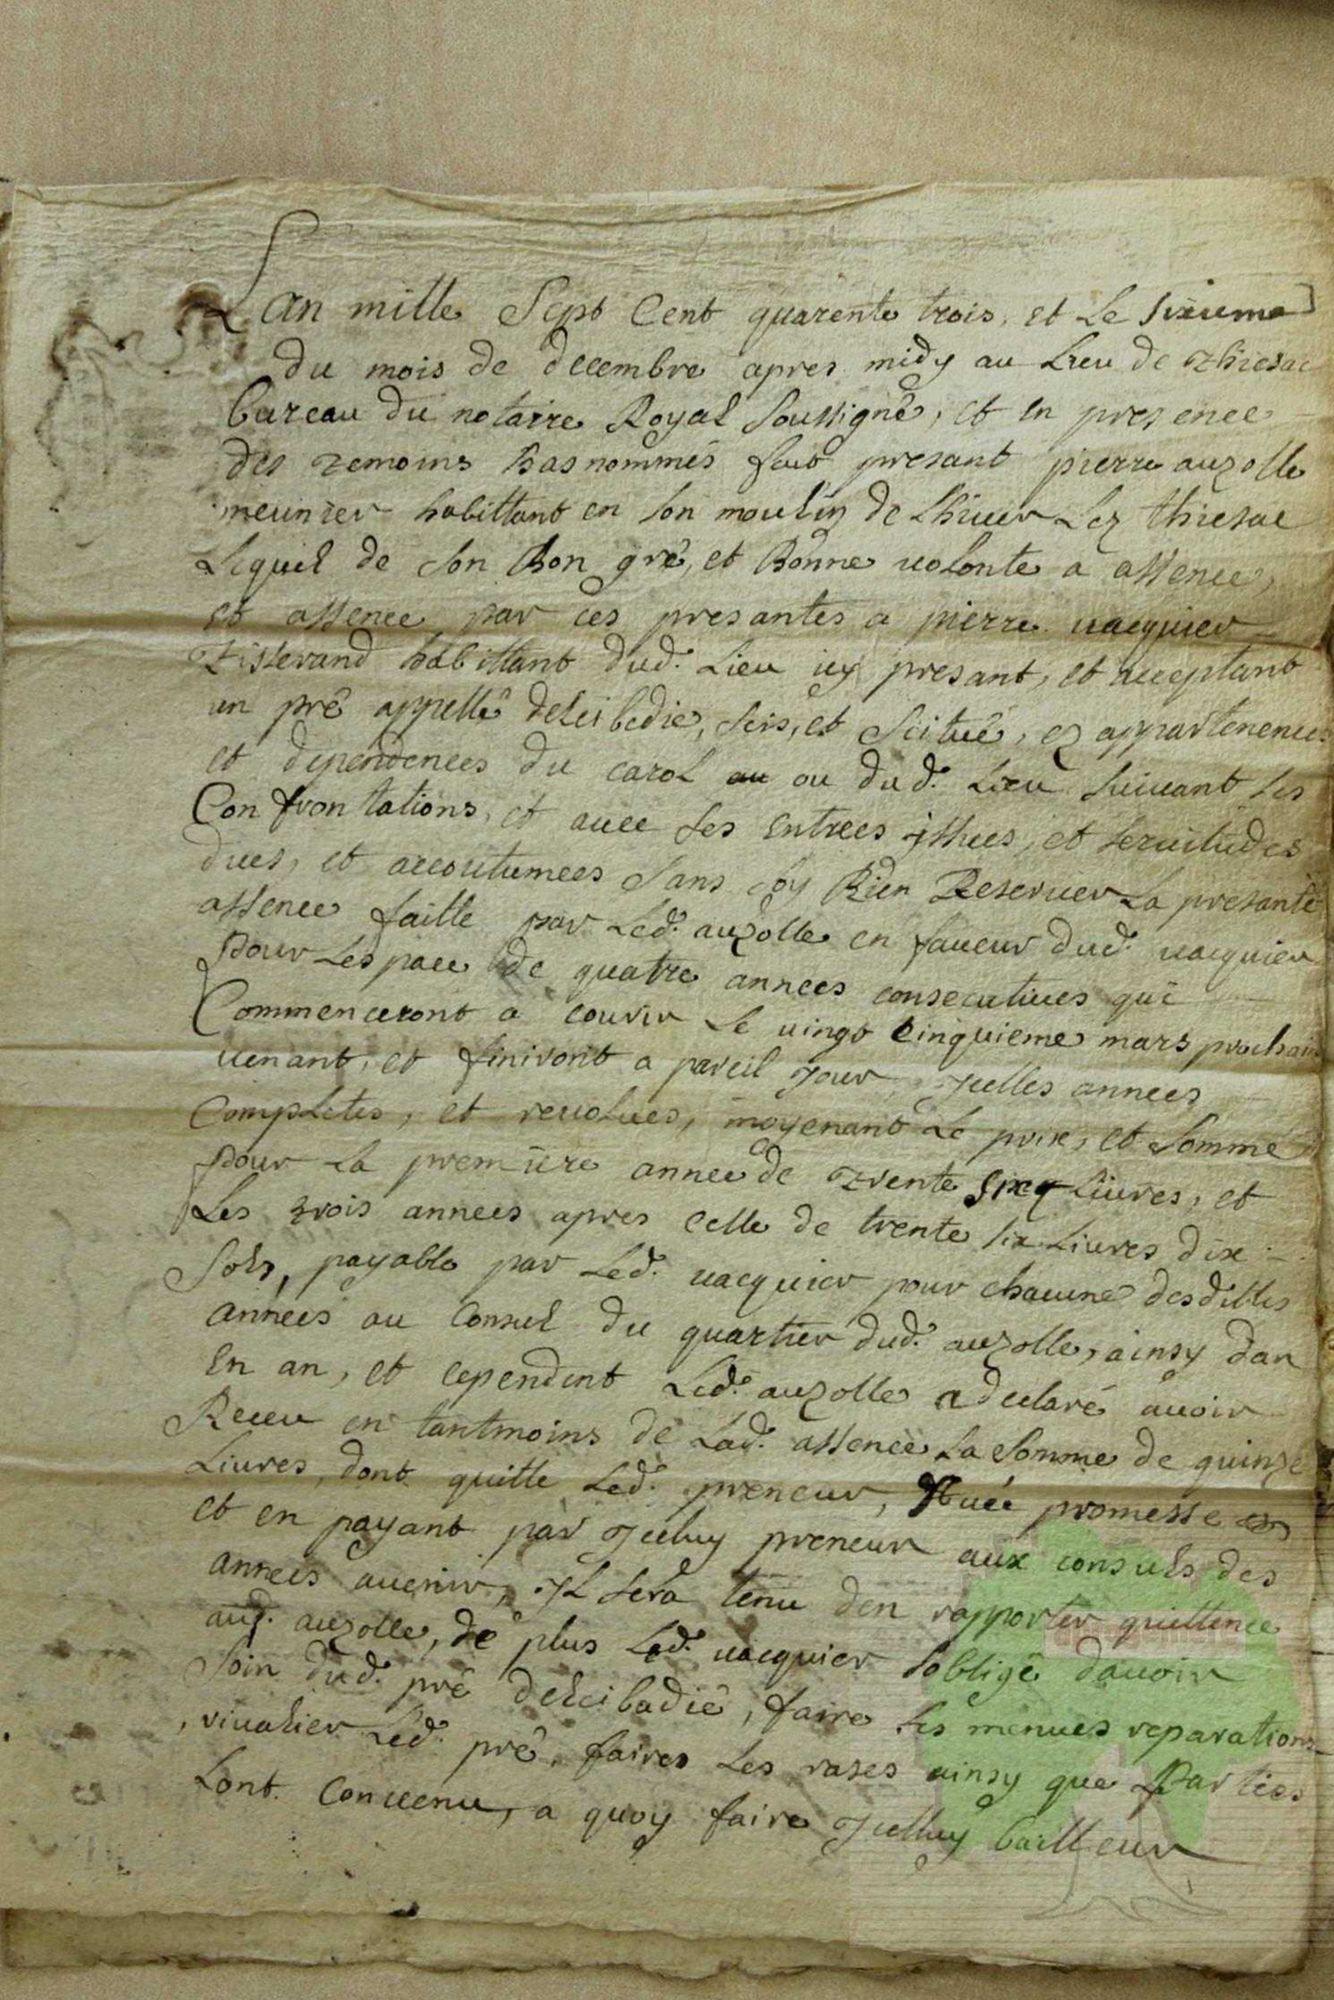 Lan mille Sept Cent quarente trois, et le sixieme
du mois de decembre apres midy au Lieu de thiesac
bureau du notaire Royal Soussigné, et en presence
des temoins bas nommés feut presant pierre auzolle
meunier habittant en son moulin de Lhiuer Lez thiesac
Lequel de son Bon gré, et Bonne uolonte a assence,
et assence par ces presantes a pierre uacquier
tisserand habittant dud. Lieu icy presant, et acceptant
un pré appellé deleibedie, sis, et scitué, ez appartenences
et dependences du carol ou dud. Lieu suiuant ses
Confrontations, et auec ses entrees issues, et seruitudes
dues, et accoutumees sans soy Rien Reseruer La presante
assence faitte par Led. auzolle en faueur dud. uacquier
pour Lespace de quatre années consecutiues qui
Commenceront a courir le uingt cinquieme mars prochain
uenant, et finiront a pareil jour, jcelles années
Completes, et reuolues, moyenant Le prix, et somme
pour La premiere année de trente livres, et
Les trois années apres celle de trente six Liures dix
sols, payable par Led. uacquier pour chacune desdittes
années au Consul du quartier dud. auzolle, ainsy dan
en an, et cependent Led. auzolle a declaré auoir
Receu en tantmoins de Lad. assence La somme de quinze
Liures, dont quitte Led. preneur, auec promesse
et en payant par jceluy preneur aux consuls des
années auenir, jl sera tenu den rapporter quittence
aud. auzolle, de plus Led. uacquier soblige dauoir
soin dud. pré deleibadie, faire les menues reparations
, riualier Led. pré, faires Les rases ainsy que Parties
Lont conuenu, a quoy faire jcelluy bailleur